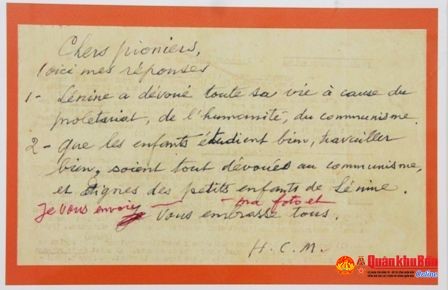 Chers pioniers,
Voici mes réponses
1- Lénine a dévoué toute sa vie à cause du
prolétariat, de l'humanité, du communisme.
2- Que les enfants étudient bien, travailler
bien, soient tout dévoués au communisme,
et dignes des petits enfants de Lénine.
Je vous envoie ma foto et
vous embrasse tous.
H.C.M.
Quân khu Bốn
Online